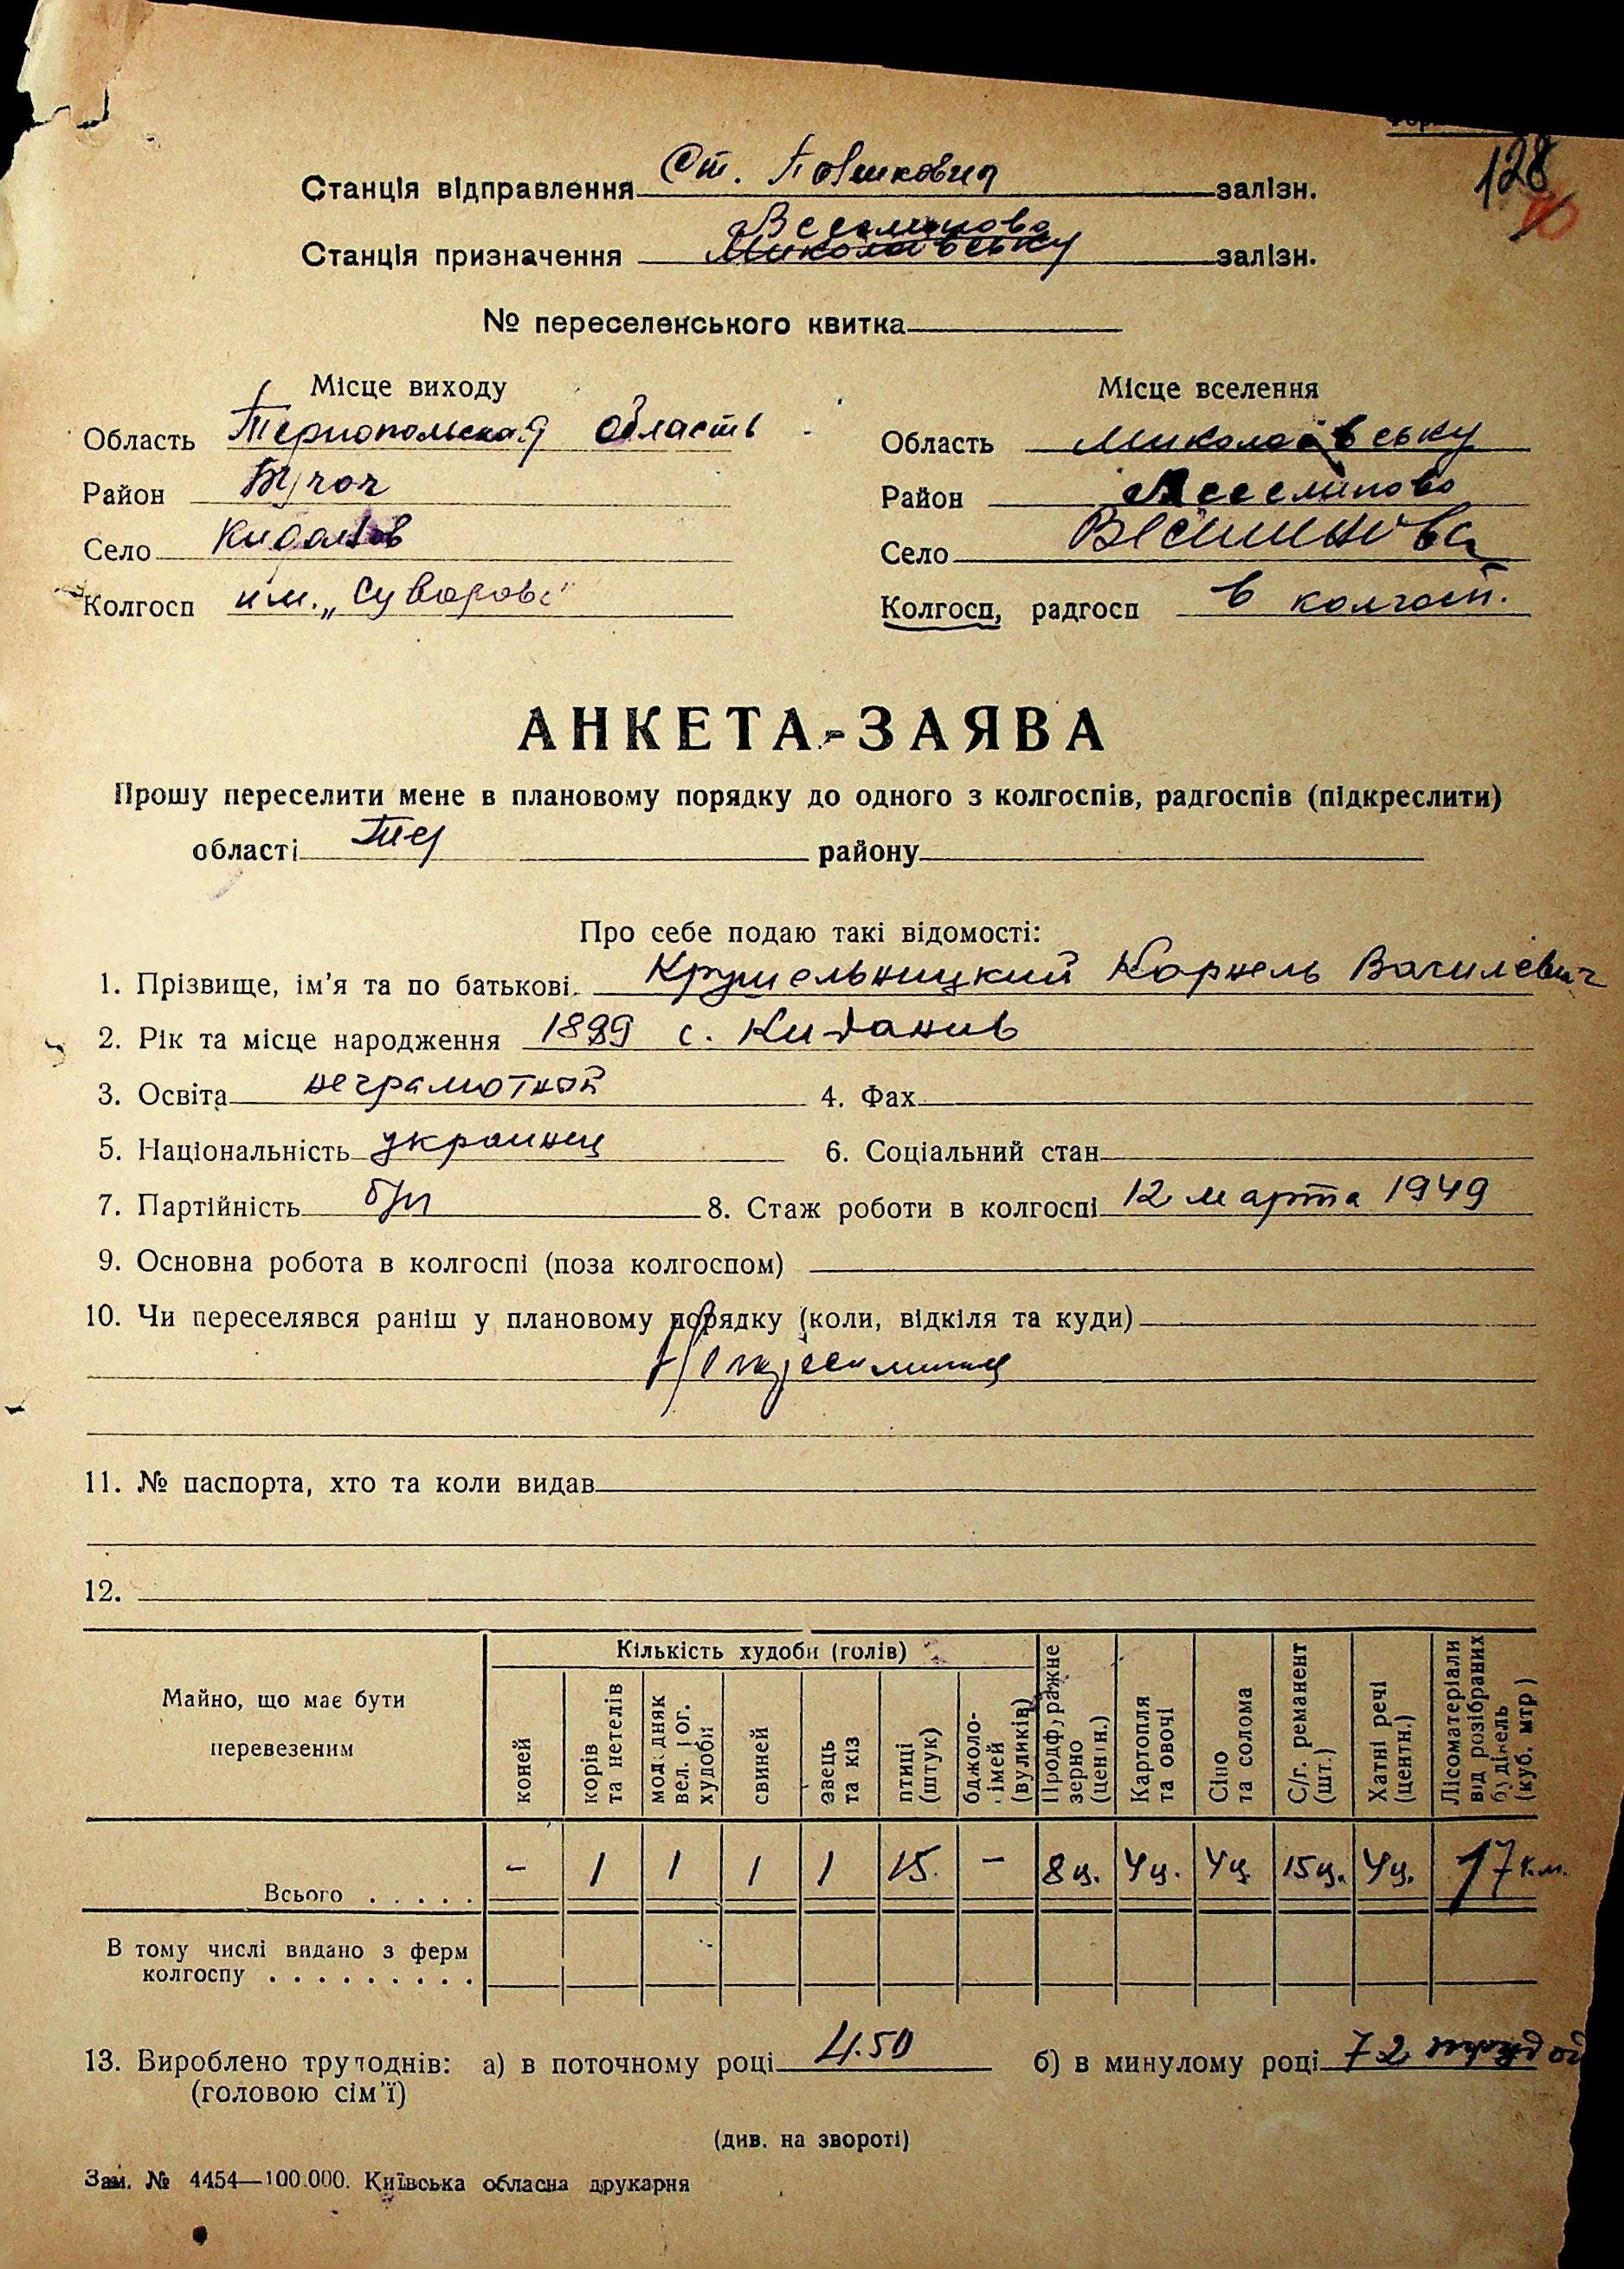 128
Станція відправлення Ст. залізн.
Веселиново
Станція призначення Миколаївську залізн.
№ переселенського квитка
Місце виходу Місце вселення
Область Тернопольская область Область Миколаївську
Район Район Веселиново
Село Село
Колгосп им. „Суворова" Колгосп, радгосп в колгосп.
АНКЕТА-ЗАЯВА
Прошу переселити мене в плановому порядку до одного з колгоспів, радгоспів (підкреслити)
області Тер району
Про себе подаю такі відомості:
1. Прізвище, ім'я та по батькові Крушельницкий Корнель Василевич
2. Рік та місце народження 1899 с. Киданив
3. Освіта неграмотной 4. Фах
5. Національність украинец 6. Соціальний стан
7. Партійність б/п 8. Стаж роботи в колгоспі 12 марта 1949
9. Основна робота в колгоспі (поза колгоспом)
10. Чи переселявся раніш у плановому порядку (коли, відкіля та куди)
11. № паспорта, хто та коли видав
12.
Майно, що має бути перевезеним
Кількість худоби (голів)
коней
корів та нетелів
молодняк вел. рог. худоби
свиней
овець та кіз
птиці (штук)
бджоло-сімей (вуликів)
Продфуражне зерно (центн.)
Картопля та овочі
Сіно та солома
С/г. реманент (шт.)
Хатні речі (центн.)
Лісоматеріали від розібраних будівель (куб. мтр)
Всього . . . . . - 1 1 1 1 15. - 8 ц. 4 ц. 4 ц 15 ц. 4 ц. 17 к.м.
В тому числі видано з ферм
колгоспу . . . . . . . . .
13. Вироблено трудоднів: а) в поточному році 450 б) в минулому році 72 трудод
(головою сім'ї)
(див. на звороті)
Зам. № 4454—100.000. Київська обласна друкарня